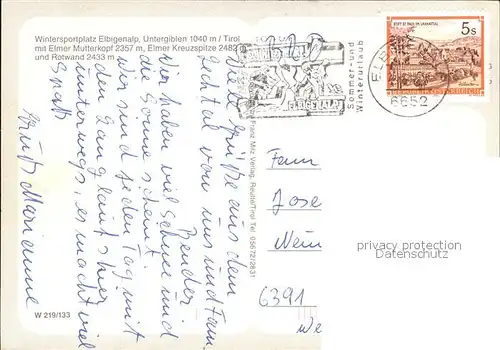 Wintersportplatz Elbigenalp, Untergiblen 1040 m / Tirol
mit Elmer Mutterkopf 2357 m, Elmer Kreuzspitze 2482
und Rotwand 2433 m
Viele Grüße aus dem
Lechtal von uns und Fam.
Bender
Wir haben viel Schnee und
die Sonne scheint.
Wir sind jeden Tag mit
den Langlaufski
unterwegs, es macht viel
Spaß
Gruß Marianne
W 219/133
Franz Milz Verlag, Reutte/Tirol Tel. 05672/2831
ELBIGENALP
Sommer- und
Winterurlaub
6652
STIFT ST. PAUL IM LAVANTTAL
5s
REPUBLIK ÖSTERREICH
Fam
Jose
Wein
6391
We
privacy protection
Datenschutz